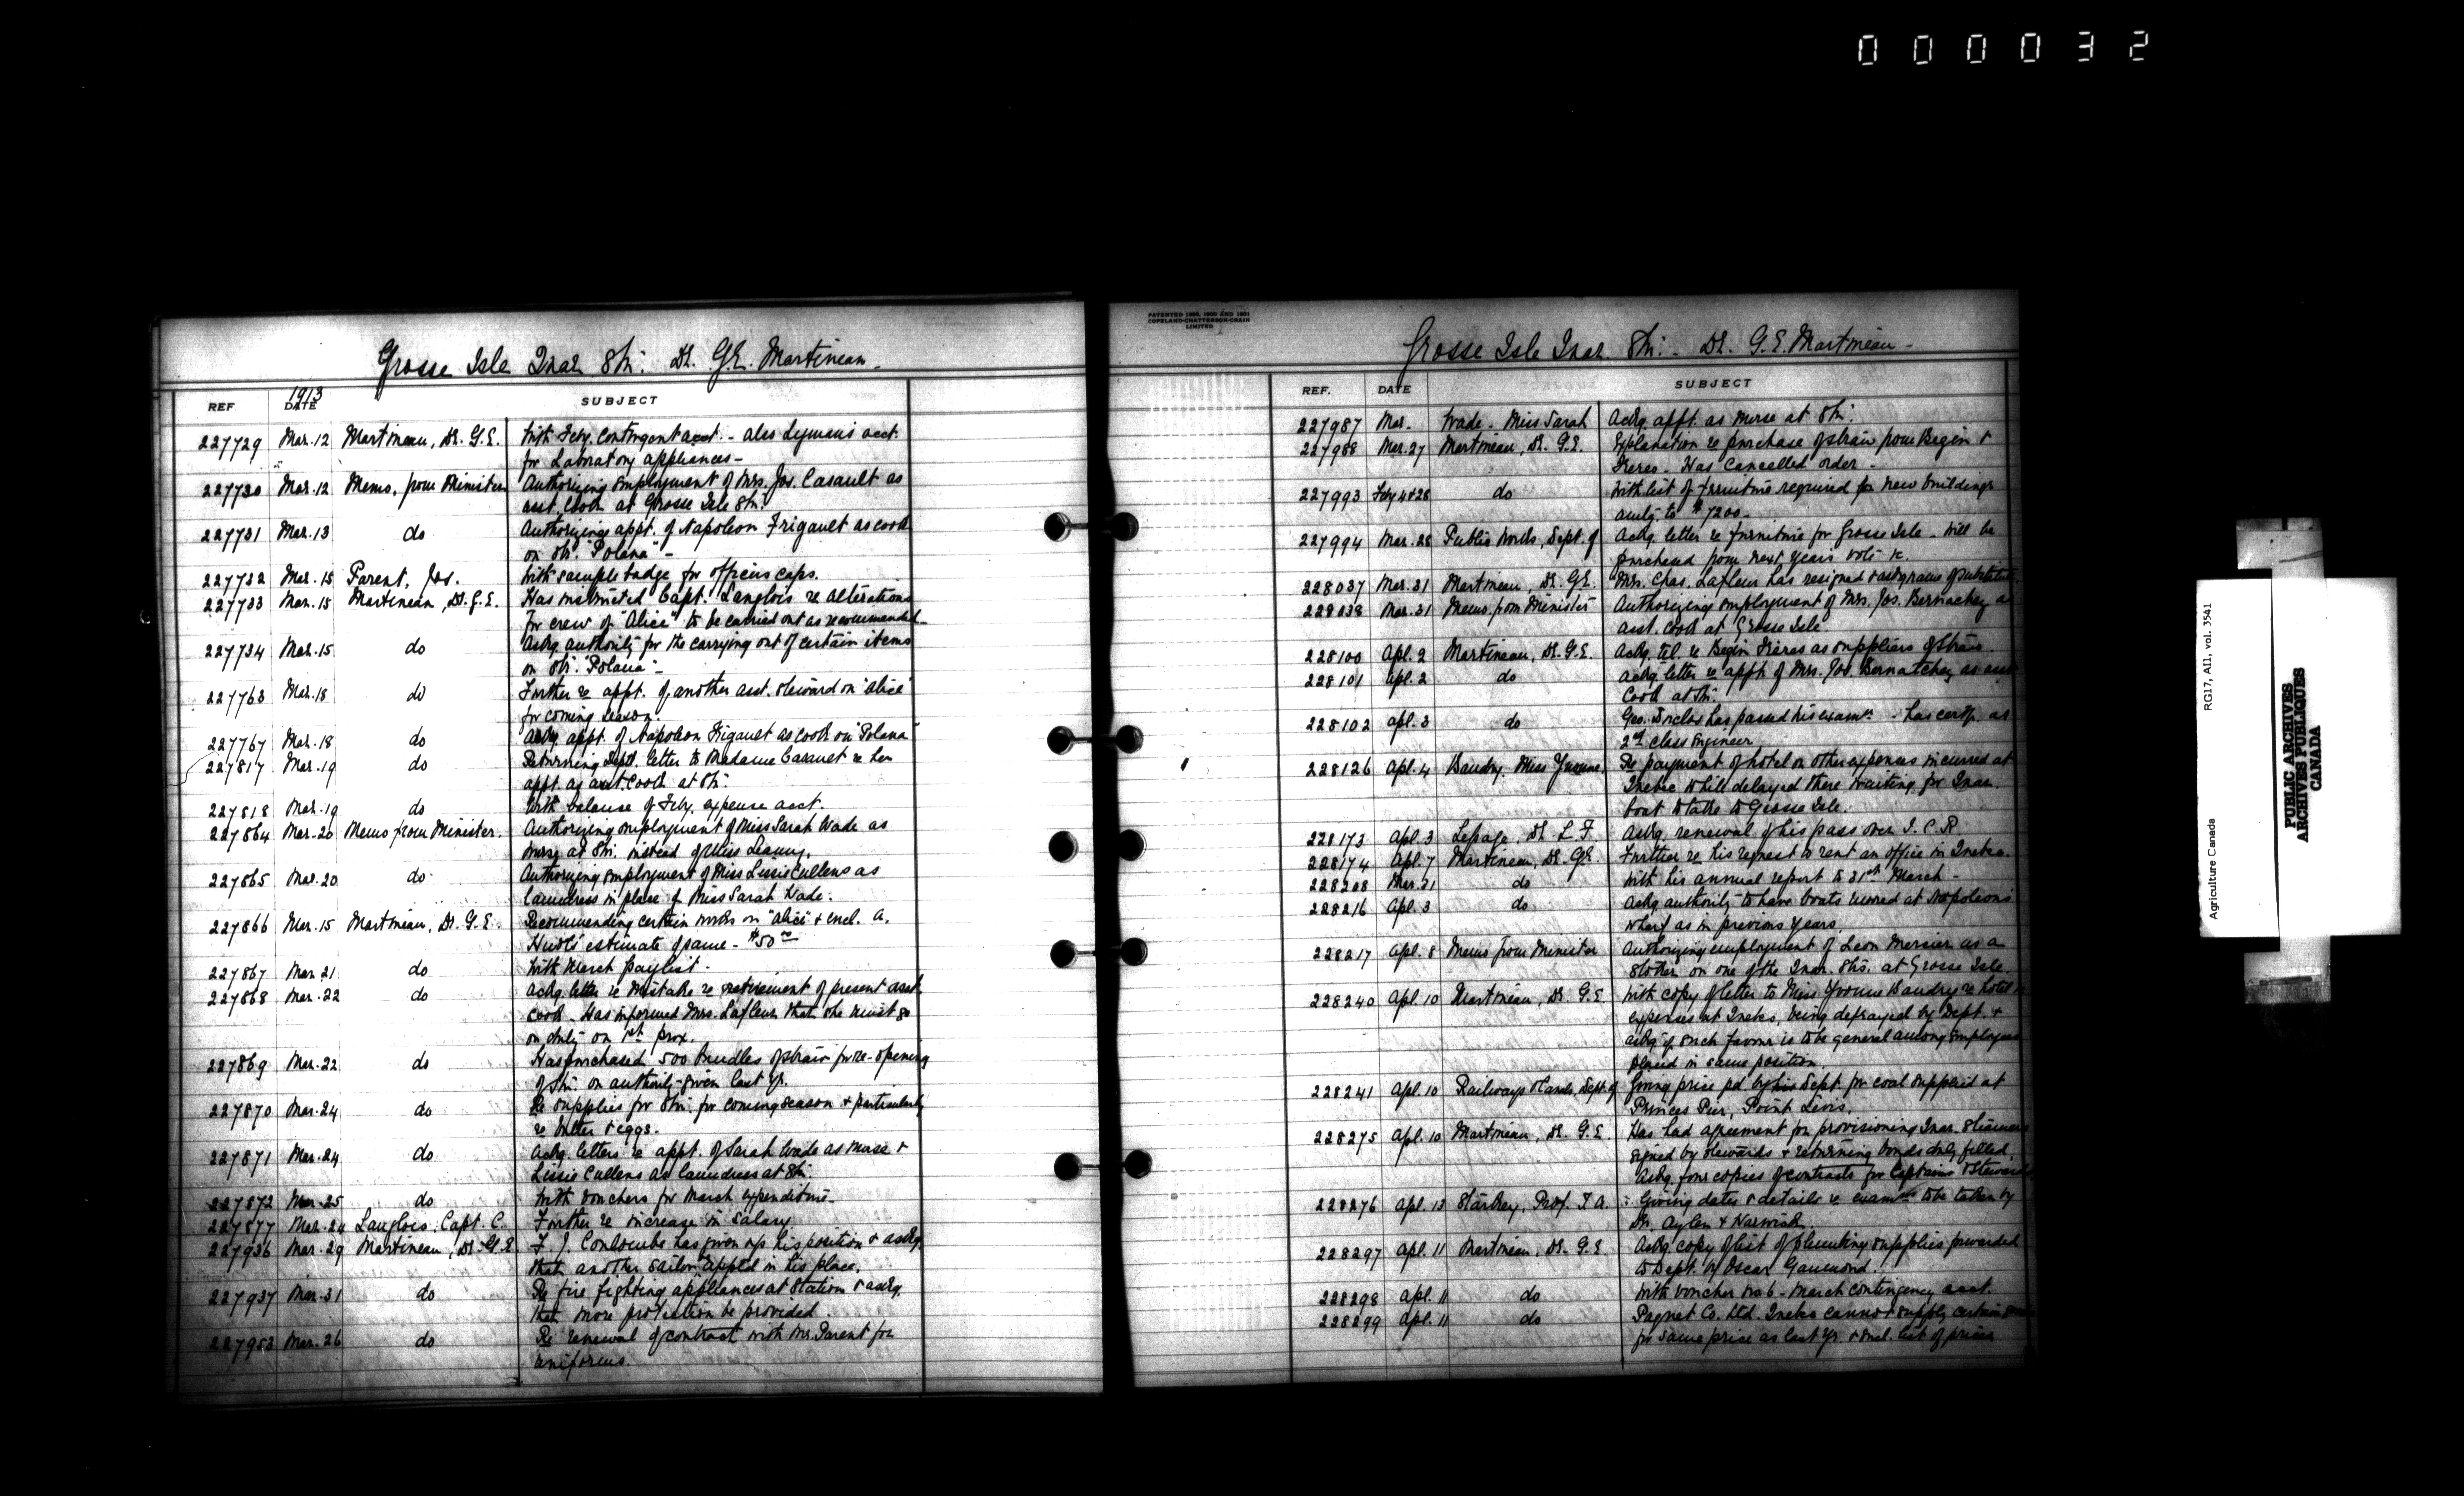 000032
Grosse Isle Quar. Stn: Dr. G.E. Martineau.
1913
REF DATE SUBJECT
227729 Mar. 12 Martineau, Dr. G.E. With Feby. contingent acct. - also Lyman's acct.
for Laboratory appliances -
227730 Mar. 12 Memo, from Minister Authorizing employment of Mrs. Jos. Casault as
asst. cook at Grosse Isle Stn:
227731 Mar. 13 do Authorizing appt. of Napoleon Frigault as cook
on Str. "Polana" -
227732 Mar. 15 Parent, Jos. With sample badge for officers caps.
227733 Mar. 15 Martineau, Dr. G.E. Has instructed Capt. Langlois re alterations
for crew of "Alice" to be carried out as recommended -
227734 Mar. 15 do Ackg. authority for the carrying out of certain items
on Str. "Polana" -
227763 Mar. 18 do Further re appt. of another asst. steward on "Alice"
for coming season.
227767 Mar. 18 do Ackg. appt. of Napoleon Frigault as cook on "Polana"
227817 Mar. 19 do Returning Dept. letter to Madame Casault re her
appt. as asst. cook at Stn:
227818 Mar. 19 do With balance of Feby. expense acct.
227864 Mar. 20 Memo from Minister. Authorizing employment of Miss Sarah Wade as
nurse at Stn. instead of Miss
227865 Mar. 20 do Authorizing employment of Miss Lissie Cullens as
laundress in place of Miss Sarah Wade.
227866 Mar. 15 Martineau, Dr. G.E. Recommending certain works on "Alice" & encl. A.
estimate of same - $50 00
227867 Mar. 21 do With March paylist.
227868 Mar. 22 do Ackg. letter re mistake re retirement of present asst.
cook - Has informed Mrs. Lafleur that she must go
on duty on 1st prox.
227869 Mar. 22 do Has purchased 500 bundles of straw for re-opening
of Stn. on authority given last yr.
227870 Mar. 24 do Re supplies for Stn. for coming season & particularly
re butter & eggs.
227871 Mar. 24 do Ackg. letters re appt. of Sarah Wade as nurse &
Lissie Cullens as laundress at Stn.
227872 Mar. 25 do With vouchers for March expenditure -
227877 Mar. 24 Langlois, Capt. C. Further re increase in salary.
227936 Mar. 29 Martineau, Dr. G.E. F. J. has given up his position & askg.
that another sailor appt'd in his place.
227937 Mar. 31 do Re fire fighting appliances at Station & askg.
that more protection be provided.
227953 Mar. 26 do Re renewal of contract with Mr. Parent for
uniforms.
PATENTED 1896, 1900 AND 1901
COPELAND-CHATTERSON-CRAIN
LIMITED
Grosse Isle Quar. Stn: - Dr. G.E. Martineau -
REF. DATE SUBJECT
227987 Mar. Wade - Miss Sarah Ackg. appt. as nurse at Stn:
227988 Mar. 27 Martineau, Dr. G.E. Explanation re purchase of straw from Begin &
Freres - Has cancelled order -
227993 Feby 4 & 28 do With list of furniture required for new buildings
amtg. to $7200 -
227994 Mar. 28 Public Works, Dept. of Ackg. letter re furniture for Grosse Isle - will be
purchased from next years vote &c.
228037 Mar. 31 Martineau, Dr. G.E. Mrs. Chas. Lafleur has resigned & askg name of substitute.
228038 Mar. 31 Memo from Minister Authorizing employment of Mrs. Jos. Bernachey as
asst. cook at Grosse Isle.
228100 Apl. 2 Martineau, Dr. G.E. Ackg. tel. re Begin Freres as suppliers of straw.
228101 Apl. 2 do Ackg. letter re appt. of Mrs. Jos. Bernatchey as asst
cook at Stn.
228102 Apl. 3 do Geo. has passed his examn - has certf. as
2nd class engineer
228126 Apl. 4 Baudry, Miss Yvonne. Re payment of hotel on other expenses incurred at
Quebec while delayed there waiting for Quar.
boat to take to Grosse Isle.
228173 Apl. 3 Lepage, Dr. L. F. Askg. renewal of his pass over I. C. R.
228174 Apl. 7 Martineau, Dr. G.E. Further re his request to rent an office in Quebec.
228208 Mar. 31 do With his annual report to 31st March -
228216 Apl. 3 do Askg authority to have boats moored at Napoleons
wharf as in previous years.
228217 Apl. 8 Memo from Minister Authorizing employment of Leon Mercier as a
Stoker on one of the Quar. Strs. at Grosse Isle.
228240 Apl. 10 Martineau, Dr. G.E. With copy of letter to Miss Yvonne Baudry re hotel
expenses at Quebec, being defrayed by Dept. &
askg if such favour is to be general among employees
placed in same position.
228241 Apl. 10 Railways & Canals, Dept. of Giving price pd by his Dept. for coal supplied at
Princes Pier, Point Levis.
228275 Apl. 10 Martineau, Dr. G.E. Has had agreement for provisioning Quar. Steamers
signed by stewards & returning bonds duly filled.
Askg four copies of contracts for Captains & Stewards
228276 Apl. 13 Starkey, Prof. T. A. : Giving dates & details re examns to be taken by
Dr. Aylen &
228297 Apl. 11 Martineau, Dr. G.E. Askg copy of list of plumbing supplies forwarded
to Dept. by Oscar
228298 Apl. 11 do With voucher No. 6 - March contingency acct.
228299 Apl. 11 do Paquet Co. Ltd. Quebec cannot supply certain
for same price as last yr. & encl. list of prices
Agriculture Canada RG17, A11, vol. 3541
PUBLIC ARCHIVES
ARCHIVES PUBLIQUES
CANADA